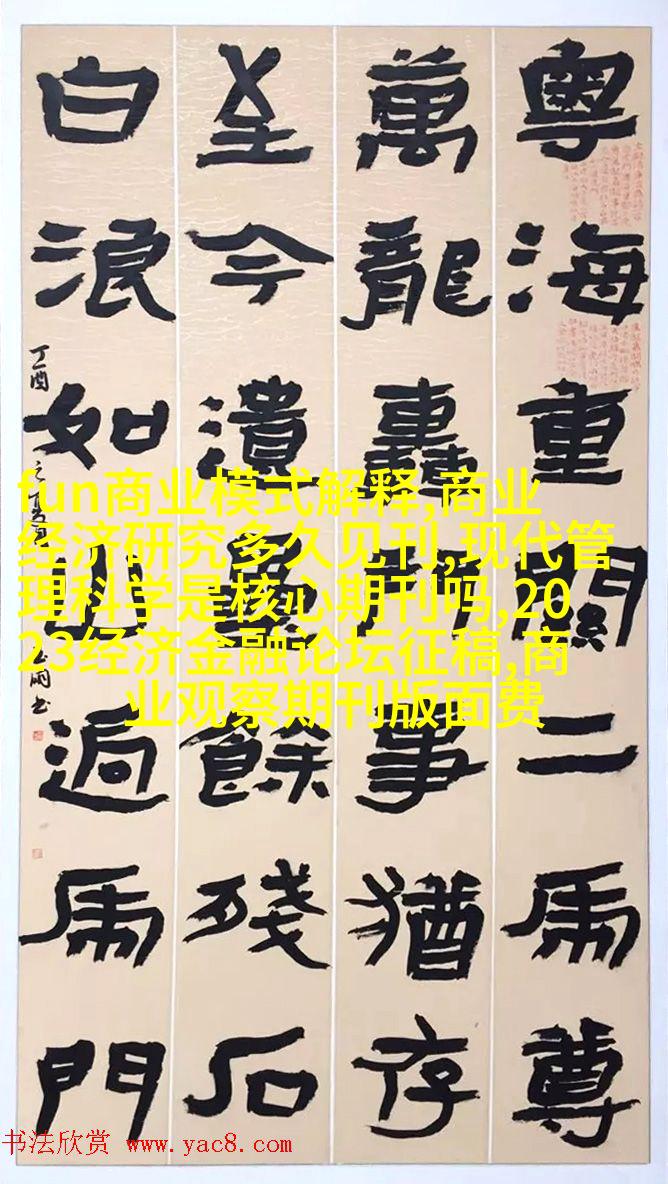 粵海重關二虎尊
萬龍轟鬥事猶存
至今潰壘餘殘石
白浪如山過虎門
丁酉之夏
fun商业模式解释,商业
经济研究多久见刊,现代管
理科学是核心期刊吗,20
23经济金融论坛征稿,商
业观察期刊版面费
书法欣赏 www.yac8.com